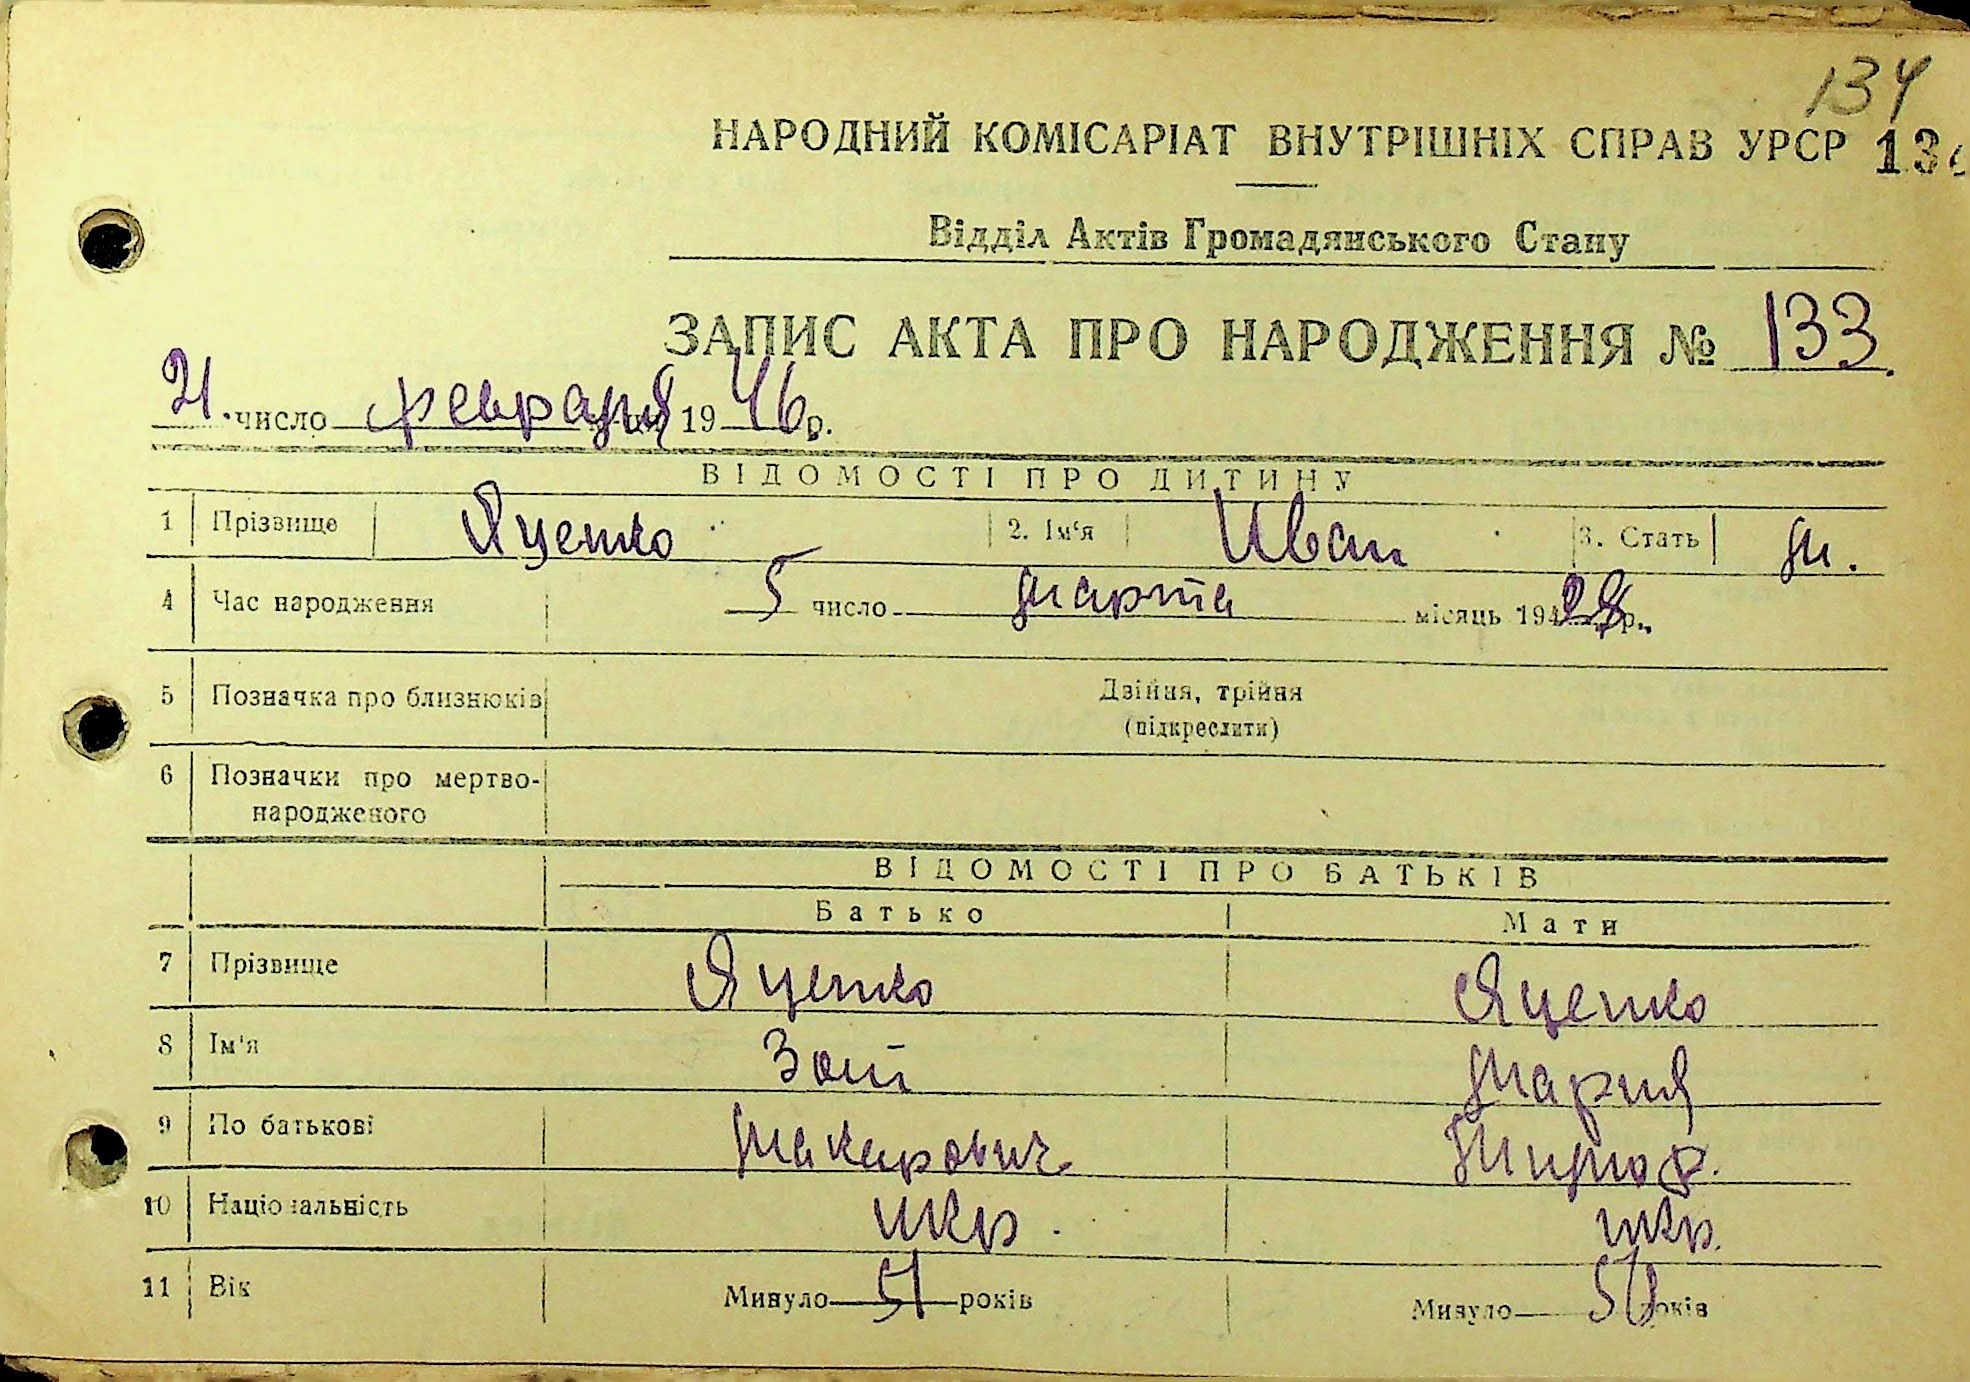 134
НАРОДНИЙ КОМІСАРІАТ ВНУТРІШНІХ СПРАВ УРСР 13
Відділ Актів Громадянського Стану
ЗАПИС АКТА ПРО НАРОДЖЕННЯ № 133.
21 число февраля 1946 р.
ВІДОМОСТІ ПРО ДИТИНУ
1 Прізвище Яценко 2. Ім'я Иван 3. Стать м.
4 Час народження 5 число марта місяць 1928 р.
5 Позначка про близнюків Двійня, трійня
(підкреслити)
6 Позначки про мертво-
народженого
ВІДОМОСТІ ПРО БАТЬКІВ
Батько Мати
7 Прізвище Яценко Яценко
8 Ім'я Зот Мария
9 По батькові Макарович
10 Національність укр. укр.
11 Вік Минуло 51 років Минуло 50 років